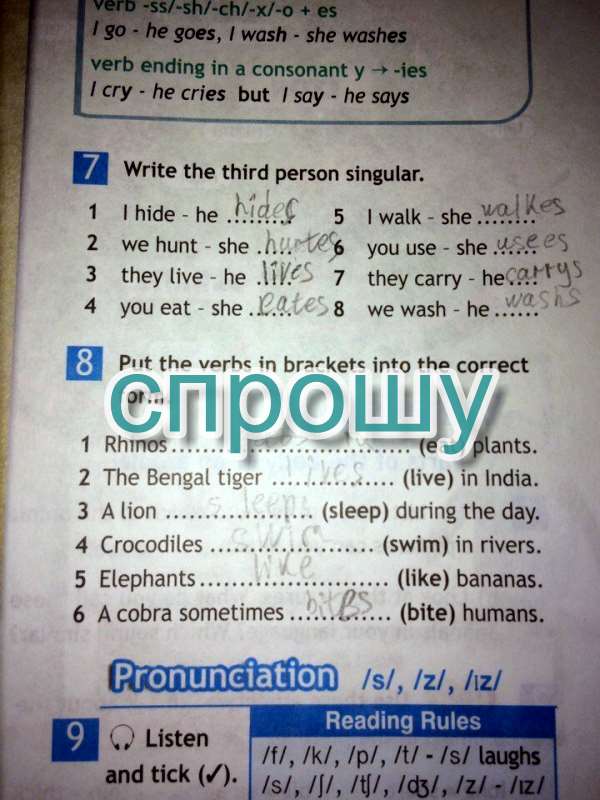 verb -ss/-sh/-ch/-x/-o + es
I go - he goes, I wash - she washes
verb ending in a consonant y → -ies
I cry - he cries but I say - he says
7 Write the third person singular.
1 I hide - he hides
5 I walk - she walkes
2 we hunt - she huntes
6 you use - she usees
3 they live - he lives
7 they carry - he carrys
4 you eat - she eates
8 we wash - he washs
8 Put the verbs in brackets into the correct
спрошу
1 Rhinos .................... (eat) plants.
2 The Bengal tiger lives (live) in India.
3 A lion sleeps (sleep) during the day.
4 Crocodiles .................... (swim) in rivers.
5 Elephants like (like) bananas.
6 A cobra sometimes bites (bite) humans.
Pronunciation /s/, /z/, /ɪz/
9 Listen
and tick (✓).
Reading Rules
/f/, /k/, /p/, /t/ - /s/ laughs
/s/, /ʃ/, /tʃ/, /dʒ/, /z/ - /ɪz/